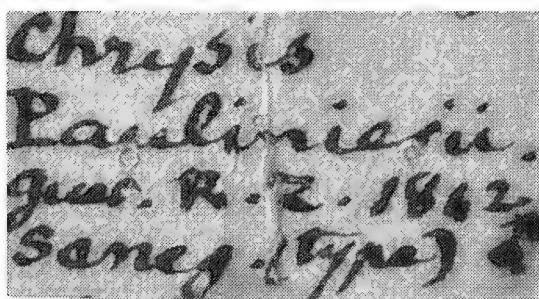 Chrysis
Paulinierii.
guer. R. Z. 1842
Seneg. (type)